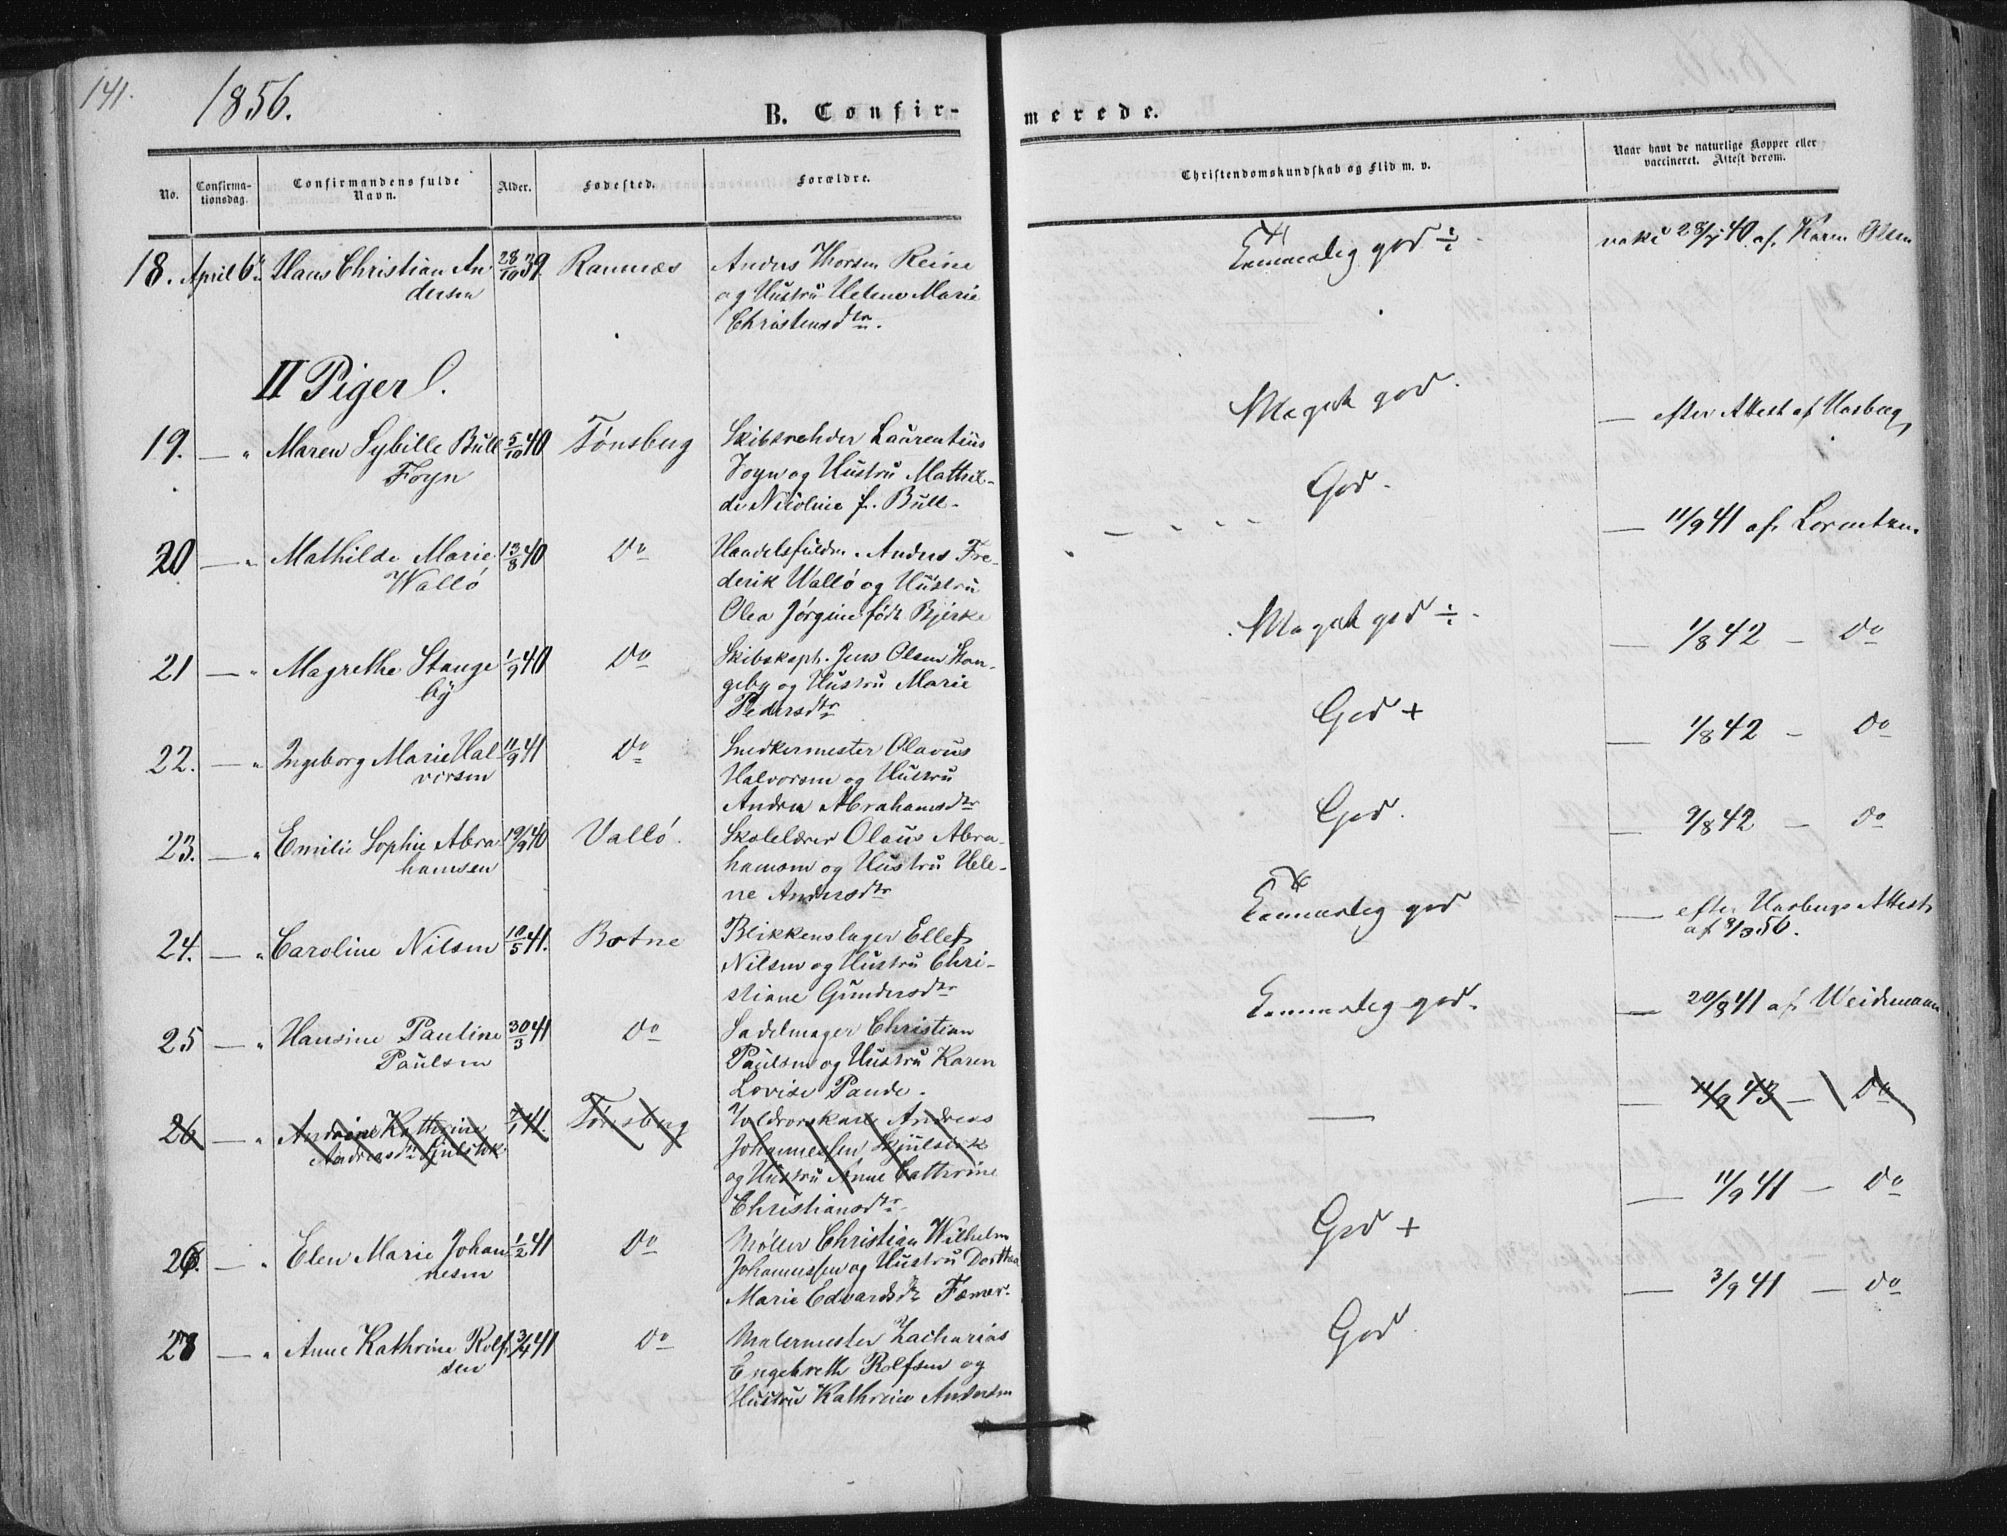 141.
1856.
B. Confir-
merede.
No.
Confirma-
tionsdag.
Confirmandens fulde
Navn.
Alder.
Fødested.
Forældre.
Christendomskundskab og Flid m. v.
Naar havt de naturlige Kopper eller
vaccineret. Attest derom.
18. April 6 Hans Christian An- 28/10 39. Ramnæs Anders Thorsen Reine
dersen og Hustru Helene Marie
Christensdtr.
Temmelig god ÷
vakc 28/7 40 af Karen Olsen
II Piger.
19. — " Maren Sybille Bull 5/10 40 Tønsberg Skibsrehder Laurentius
Foyn Foyn og Hustru Mathil-
de Nicoline f. Bull.
Meget god.
— efter Attest af Harberg
20 — " Mathilde Marie 13/8 40 Do Handelsfuldm. Anders Fre-
Wallø derik Wallø og Hustru
Olea Jørgine født Bjerke
God.
— 11/9 41 af Lorentzen
21 — " Magrethe Stange 1/9 40 Do Skibskapt. Jens Olsen Stan-
by geby og Hustru Marie
Pedersdtr
Meget god ÷
— 1/8 42 — Do
22. — " Ingeborg Marie Hal 11/9 41 Do Snedkermester Olavus
versen Halvorsen og Hustru
Andrea Abrahamsdtr
God +
— 1/8 42 — Do
23. — " Emilie Sophie Abra 19/9 40 Vallø. Skolelærer Olaus Abra-
hamsen hamsen og Hustru Hele-
ne Andersdtr
God.
— 9/8 42 — Do
24. — " Caroline Nilsen 10/5 41. Botne Blikkenslager Ellef
Nilsen og Hustru Chri-
stiane Gundersdtr
Temmelig god
— efter Harbergs Attest
af 9/3 56.
25 — " Hansine Pauline 30/3 41 Do Sadelmager Christian
Paulsen Paulsen og Hustru Karen
Lovise Pande.
Temmelig god.
— 20/8 41 af Weidemann
26 — " Andrine Kathrine 41. Tønsberg Andreas
Andreasdtr Johannessen
og Hustru Anne Cathrine
Christiansdtr.
—
— 11/9 43 — Do
26. — " Elen Marie Johan 1/2 41 Do Møller Christian Wilhelm
nesen Johannessen og Hustru Dorthea
Marie Edvardsdtr
God +
— 11/9 41 — Do
28 — " Anne Kathrine Rolf 3/4 41 Do Malermester Zacharias
sen Engebreth Rolfsen og
Hustru Kathrine Andersen
God.
— 3/9 41 — Do